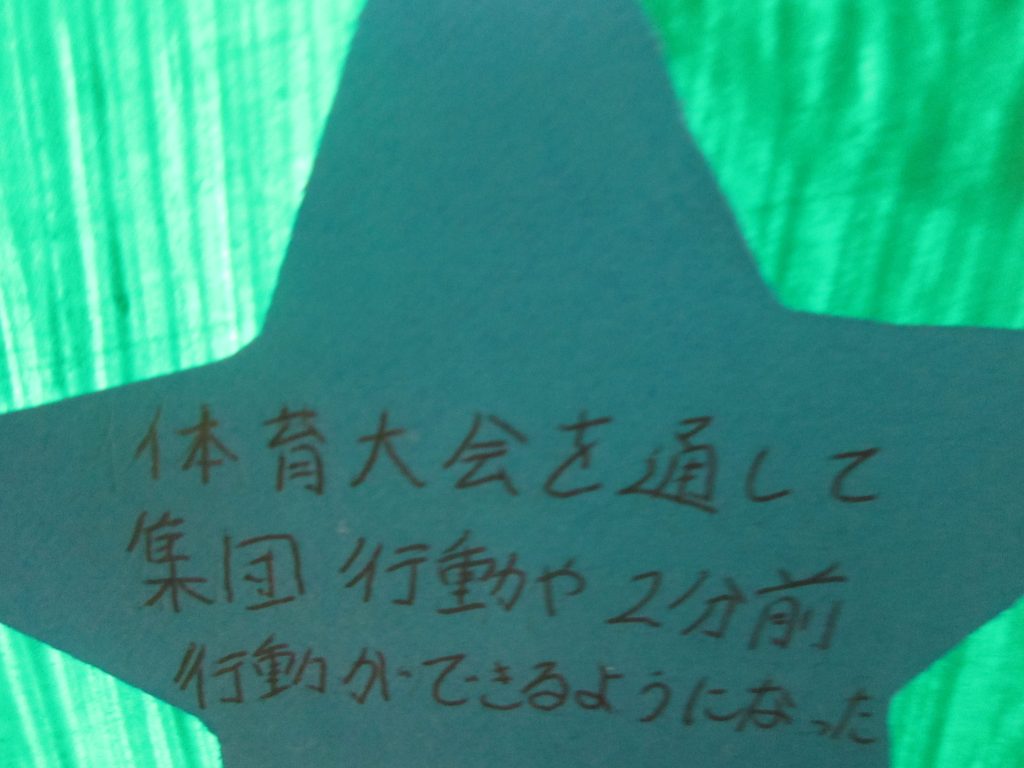 体育大会を通して
集団行動や2分前
行動ができるようになった